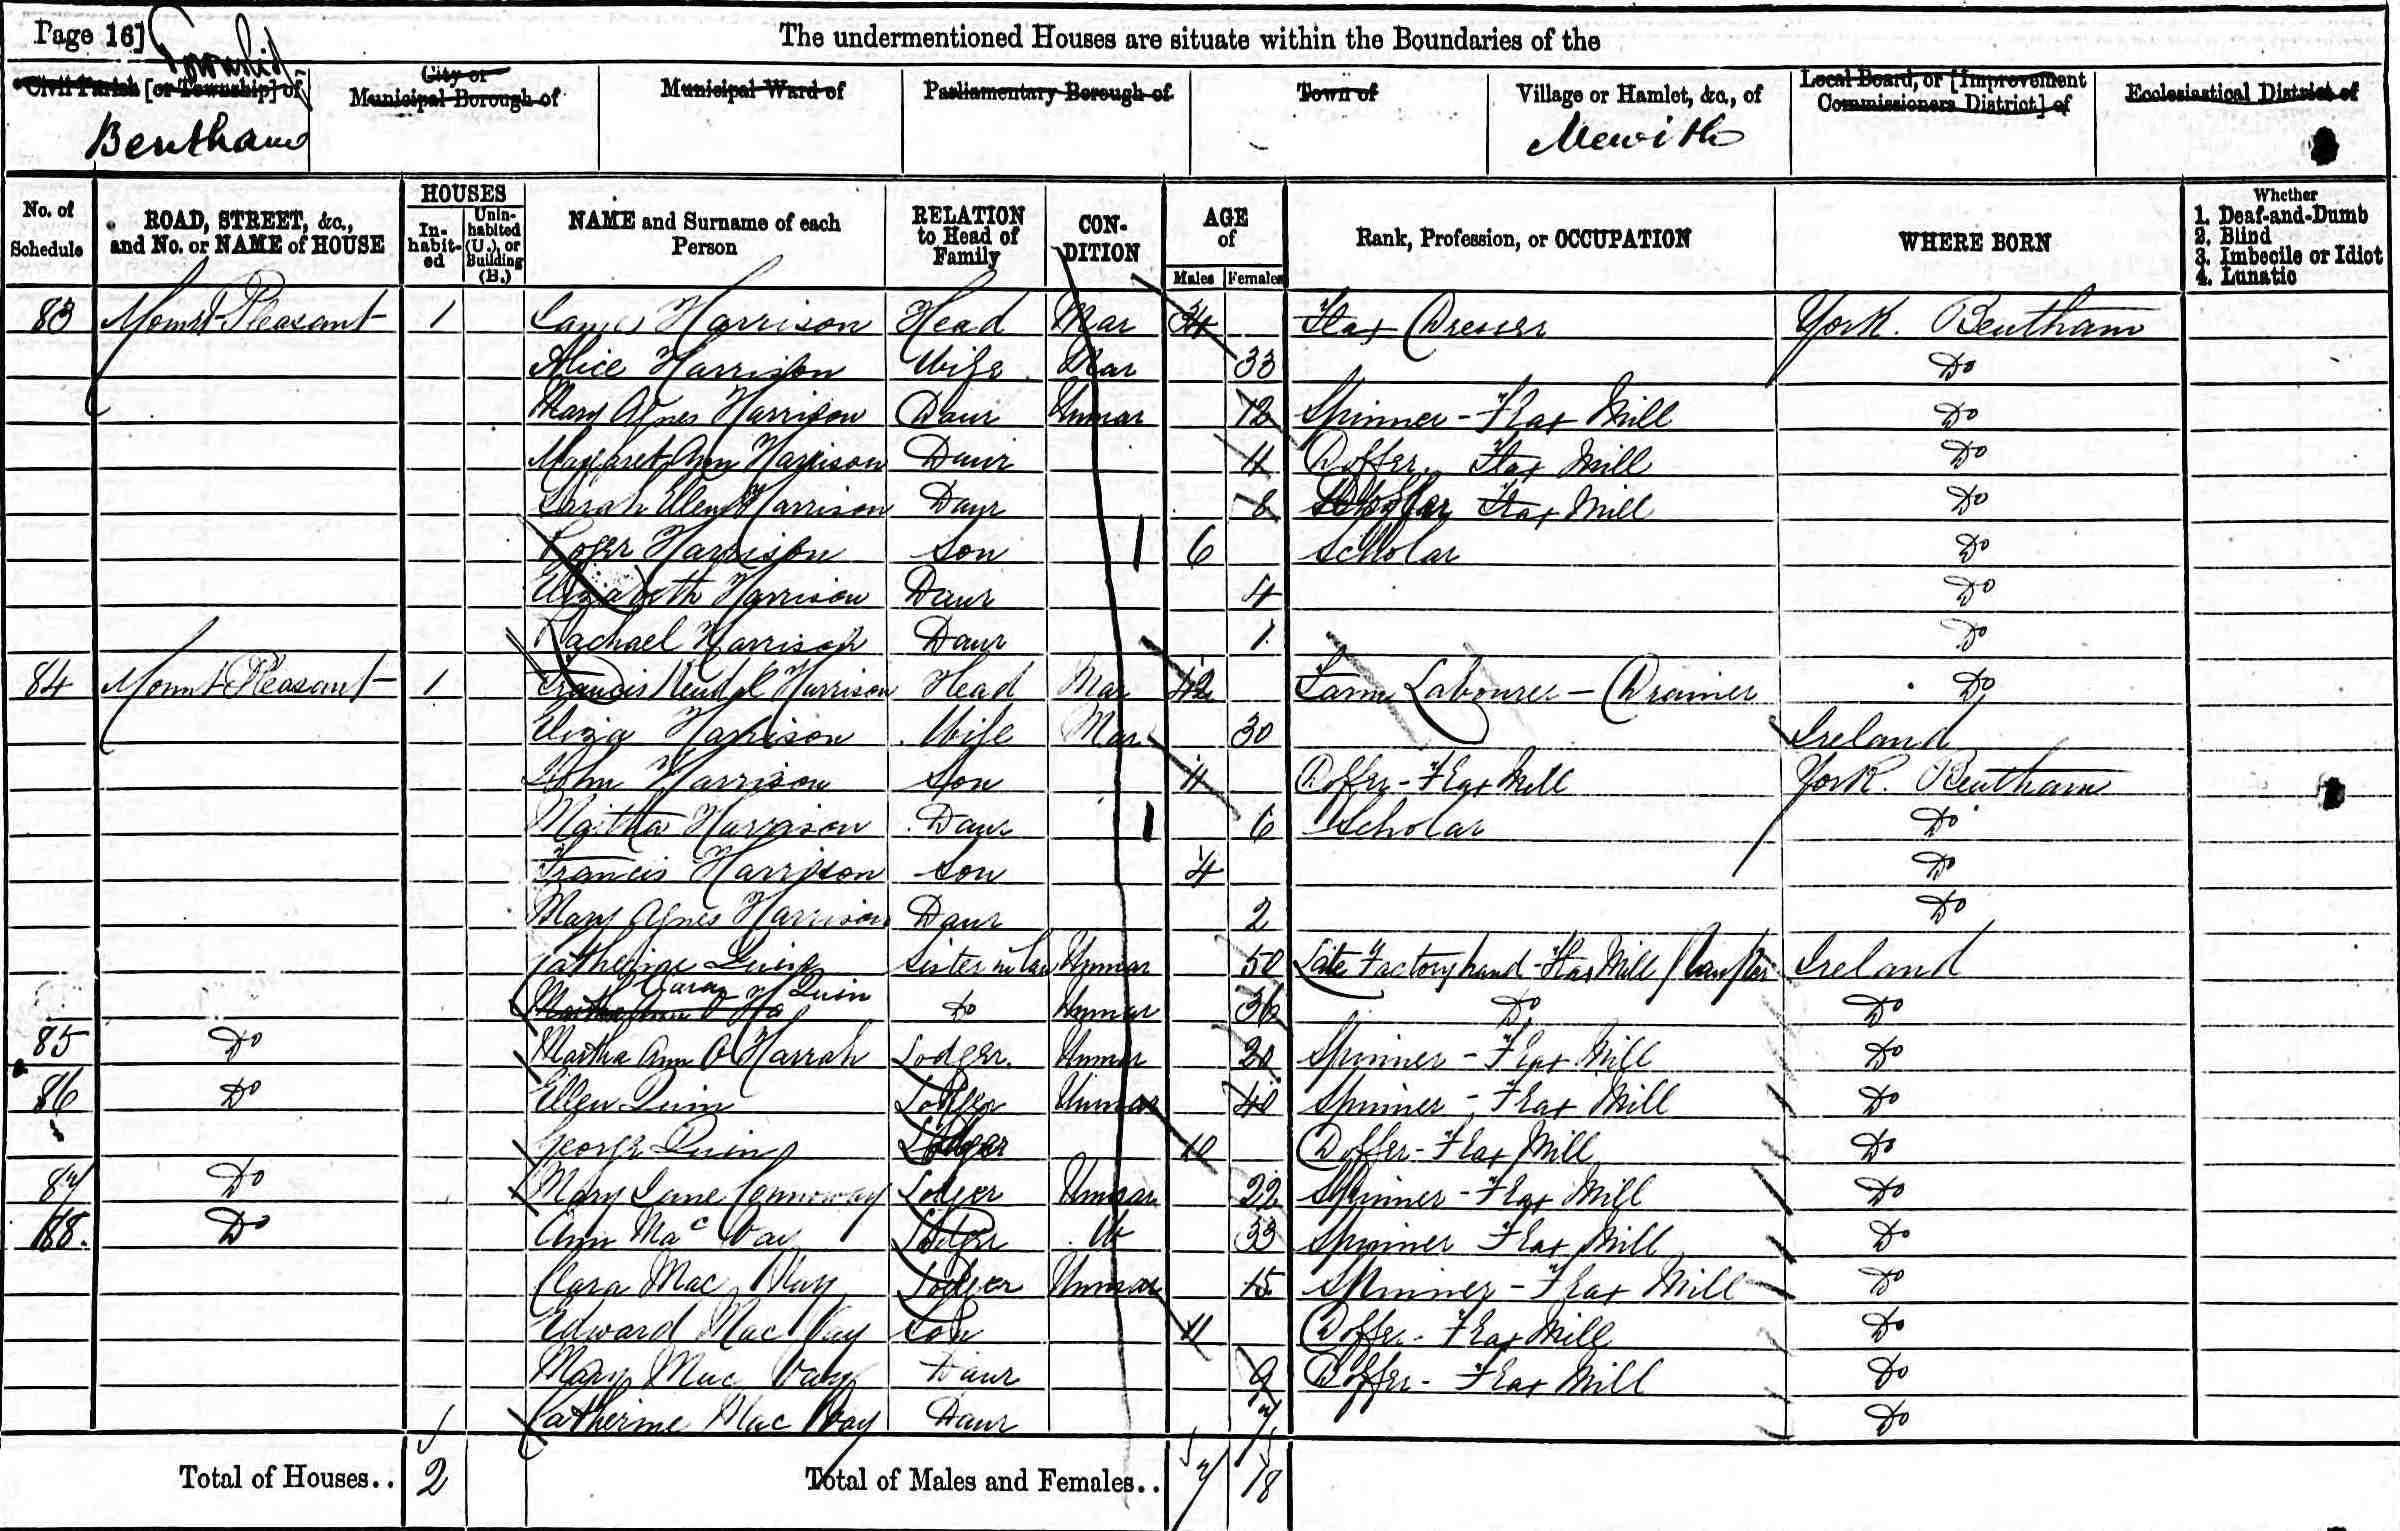 Page 16] The undermentioned Houses are situate within the Boundaries of the
Township
Civil Parish [or Township] of City or Municipal Borough of Municipal Ward of Parliamentary Borough of Town of Village or Hamlet, &c., of Local Board, or [Improvement Commissioners District] of Ecclesiastical District of
Bentham Mewith
No. of Schedule ROAD, STREET, &c., and No. or NAME of HOUSE HOUSES In-habit-ed Unin-habited (U.), or Building (B.) NAME and Surname of each Person RELATION to Head of Family CON-DITION AGE of Males Females Rank, Profession, or OCCUPATION WHERE BORN Whether 1. Deaf-and-Dumb 2. Blind 3. Imbecile or Idiot 4. Lunatic
83 Mount Pleasant 1 Harrison Head Mar 34 Flax Dresser York. Bentham
Alice Harrison Wife Mar 33 Do
Mary Agnes Harrison Daur Unmar 12 Spinner - Flax Mill Do
Margaret Ann Harrison Daur 11 Doffer Flax Mill Do
Sarah Ellen Harrison Daur 8 Flax Mill Do
Roger Harrison Son 6 Scholar Do
Elizabeth Harrison Daur 4 Do
Rachael Harrison Daur 1 Do
84 Mount Pleasant 1 Francis Harrison Head Mar 42 Farm Labourer - Drainer Do
Eliza Harrison Wife Mar 30 Ireland
John Harrison Son 11 Doffer - Flax Mill York. Bentham
Martha Harrison Daur 6 Scholar Do
Francis Harrison Son 4 Do
Mary Agnes Harrison Daur 2 Do
Catherine Quin Sister in law Unmar 50 Late Factory hand - Flax Mill Ireland
Quin Do Unmar 36 Do Do
85 Do Martha Ann O Harrah Lodger. Unmar 20 Spinner - Flax Mill Do
86 Do Ellen Quin Lodger Unmar 40 Spinner - Flax Mill Do
George Quin Lodger 10 Doffer - Flax Mill Do
87 Do Mary Jane Connoway Lodger Unmar 22 Spinner - Flax Mill Do
88. Do Ann Mac Vay Lodger W 33 Spinner Flax Mill Do
Clara Mac Vay Lodger Unmar 15 Spinner - Flax Mill Do
Edward Mac Vay Son 11 Doffer - Flax Mill Do
Mary Mac Vay Daur 9 Doffer - Flax Mill Do
Catherine Mac Vay Daur 7 Do
Total of Houses.. 2 Total of Males and Females.. 7 18